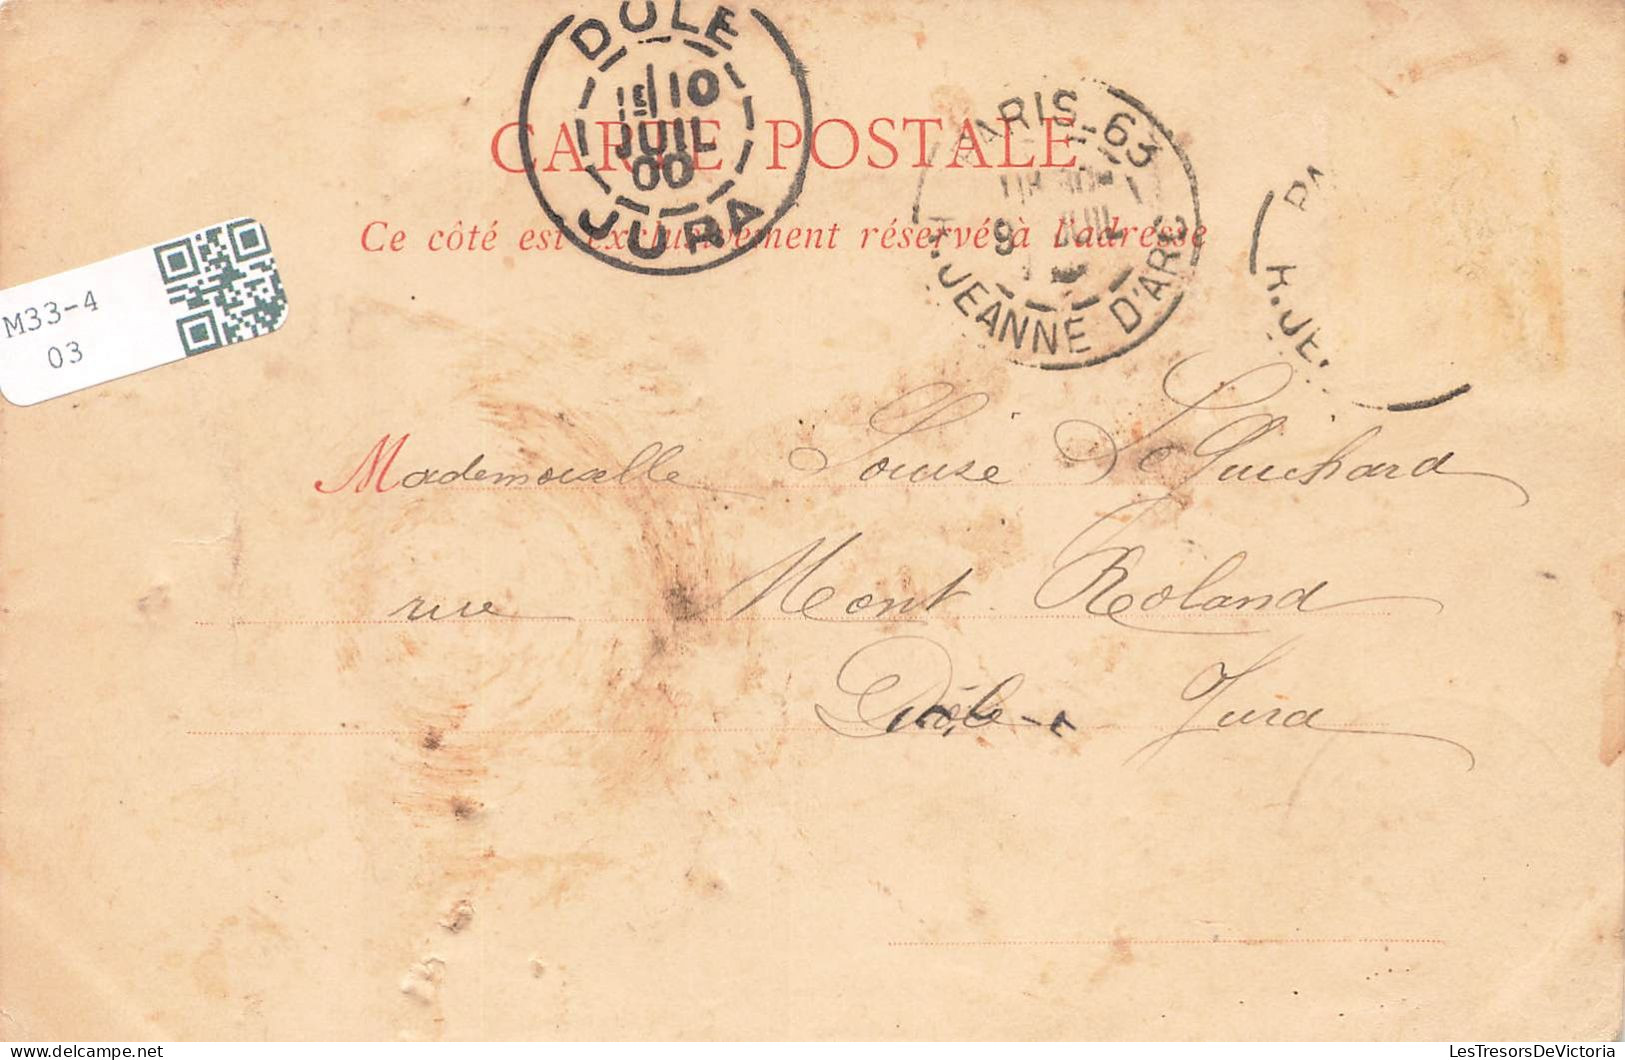 DOLE
1E 10
JUIL
00
JURA
PARIS_63
9 JUIL
R. JEANNE D'ARC
PA
R. JE.
CARTE POSTALE
Ce côté est exclusivement réservé à l'adresse
M33-4
03
Mademoiselle Louise Guichard
rue Mont Roland
Dôle - Jura
LesTresorsDeVictoria